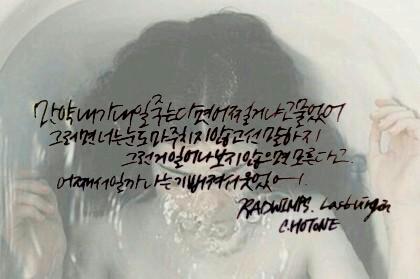 만약 내가 내일 죽는다면 어쩔거냐고 물었어
그러면 너는 눈도 마주치지 않고선 말하지
그런게 일어나보지 않으면 모른다고.
어째서일까 나는 기뻐져서 웃었어.
RADWIMPS.
C.HOTONE